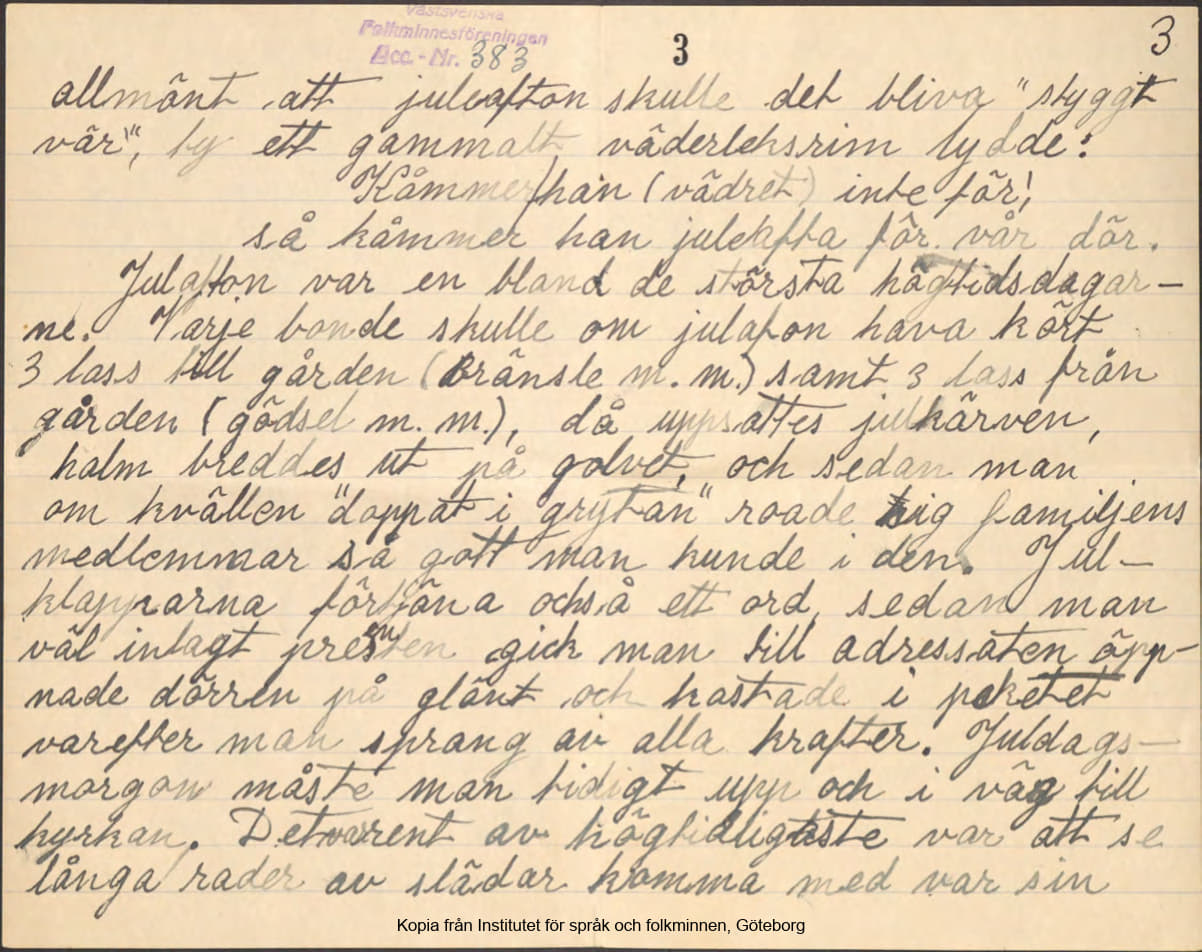 Västsvenska
Folkminnesföreningen
Acc.-Nr. 383
3
3
allmänt att juleafton skulle det bliva "styggt
vär", ty ett gammalt väderleksrim lydde:
Kåmmer han (vädret) inte för,
så kåmmer han juleafta för vår dör.
Julafton var en bland de största högtidsdagar-
ne. Varje bonde skulle om julafon hava kört
3 lass till gården (bränsle m. m.) samt 3 lass från
gården (gödsel m. m.), då uppsattes julkärven,
halm breddes ut på golvet, och sedan man
om kvällen "doppat i grytan" roade sig familjens
medlemmar så gott man kunde i den. Jul-
klapparna förtjäna också ett ord, sedan man
väl inlagt presenten gick man till adressaten öpp-
nade dörren på glänt och kastade i paketet
varefter man sprang av alla krafter. Juldags-
morgon måste man tidigt upp och i väg till
kyrkan. Det mest av högtidligaste var att se
långa rader av slädar komma med var sin
Kopia från Institutet för språk och folkminnen, Göteborg